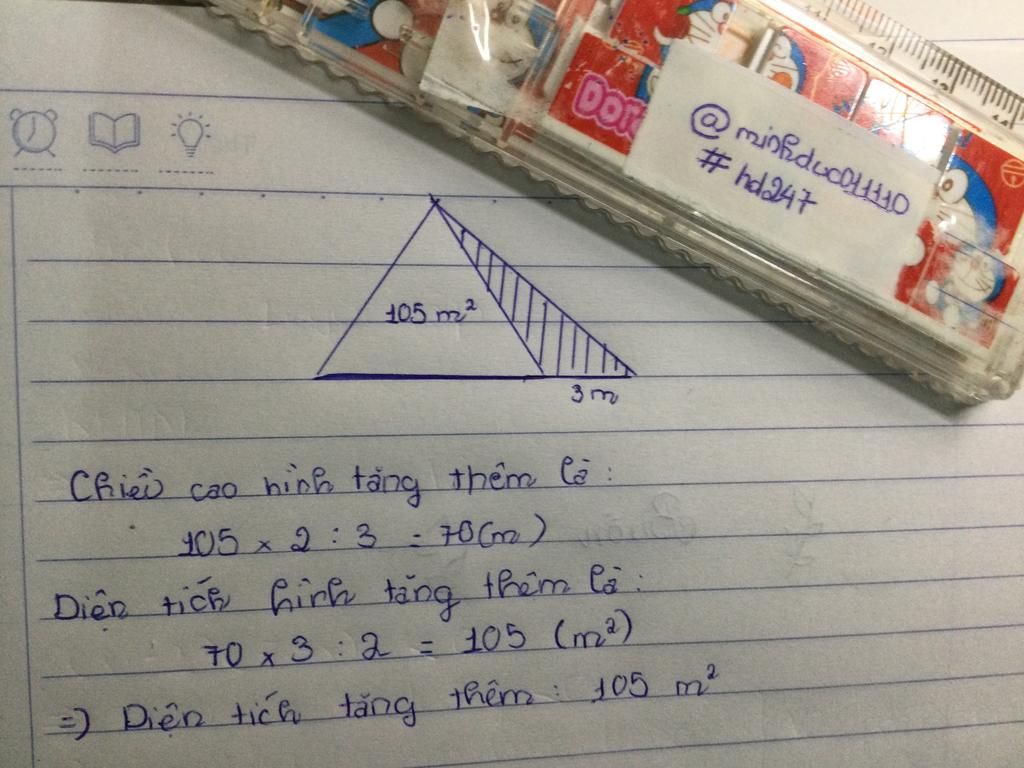 DOR
@minhduc011110
# hd247
105 m²
3 m
Chiều cao hình tăng thêm là:
105 x 2 : 3 = 70(m)
Diện tích hình tăng thêm là:
70 x 3 : 2 = 105 (m²)
=) Diện tích tăng thêm: 105 m²